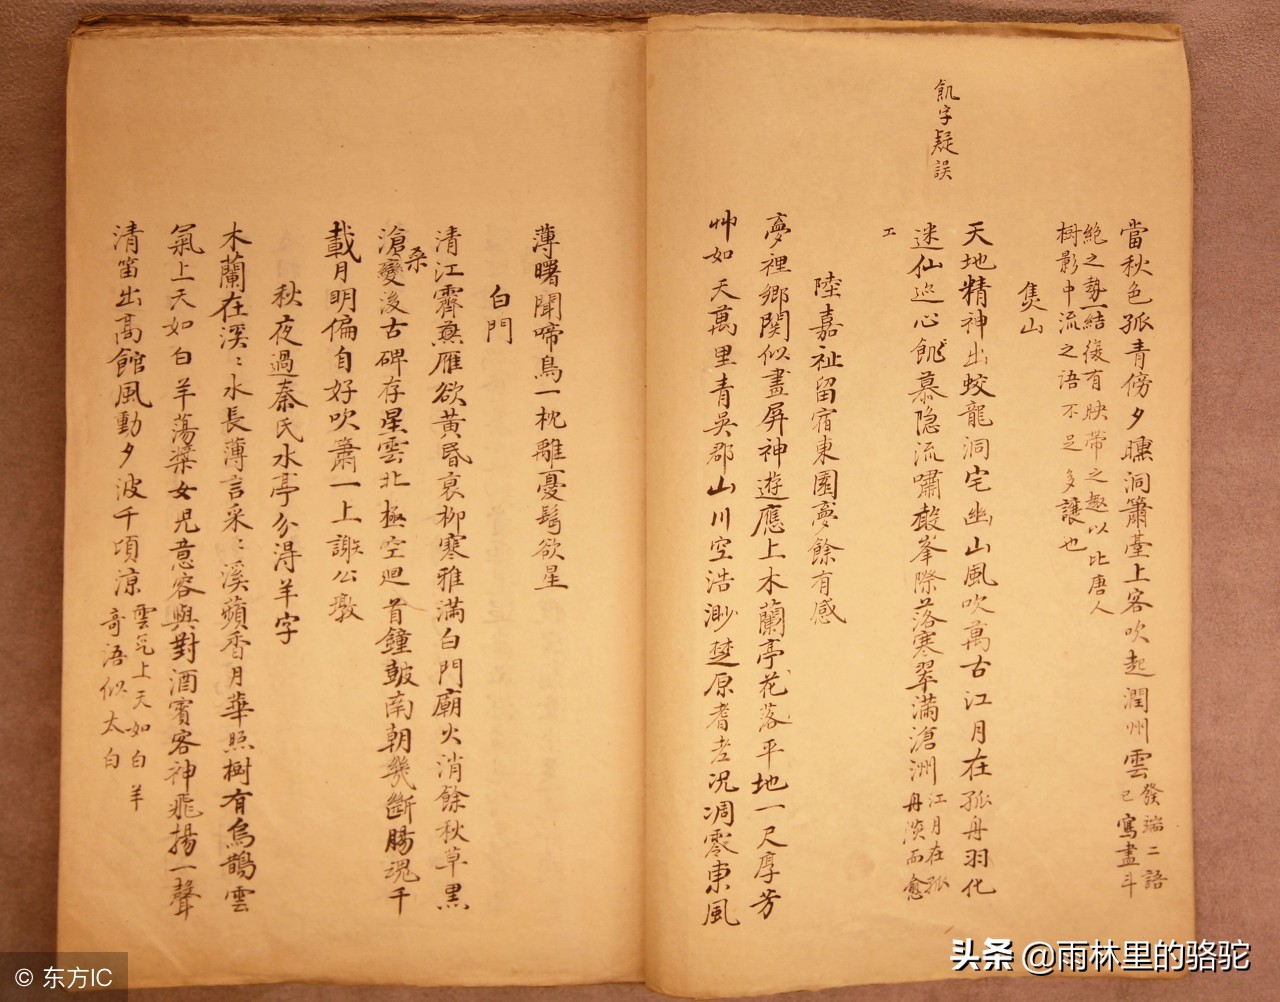 飢字疑誤
當秋色孤青傍夕曛洞簫臺上客吹起潤州雲發端二語已寫盡斗
絕之勢一結復有映帶之趣以比唐人
樹影中流之語不足多讓也
焦山
天地精神出蛟龍洞宅幽山風吹萬古江月在孤舟羽化
迷仙巡心飢慕隐流嘯殘峯際落寒翠滿滄洲江月在孤舟淡而愈
工
陸嘉祉留宿東園夢餘有感
夢裡鄉関似畫屏神遊應上木蘭亭花落平地一尺厚芳
艸如天萬里青吳郡山川空浩渺楚原耆老况凋零東風
薄曙聞啼鳥一枕離憂髩欲星
白門
清江霽蕪雁欲黄昏哀柳寒雅滿白門廟火消餘秋草黒
滄桑變後古碑存星雲北極空迴首鐘皷南朝幾斷腸魂千
載月明偏自好吹簫一上謝公墩
秋夜過秦氏水亭分得羊字
木蘭在溪：水長薄言采：溪蘋香月華照樹有烏鵲雲
氣上天如白羊蕩槳女兒意容與對酒賓客神飛揚一聲
清笛出高館風動夕波千頃凉雲氣上天如白羊
奇语似太白
© 东方IC
头条 @雨林里的骆驼